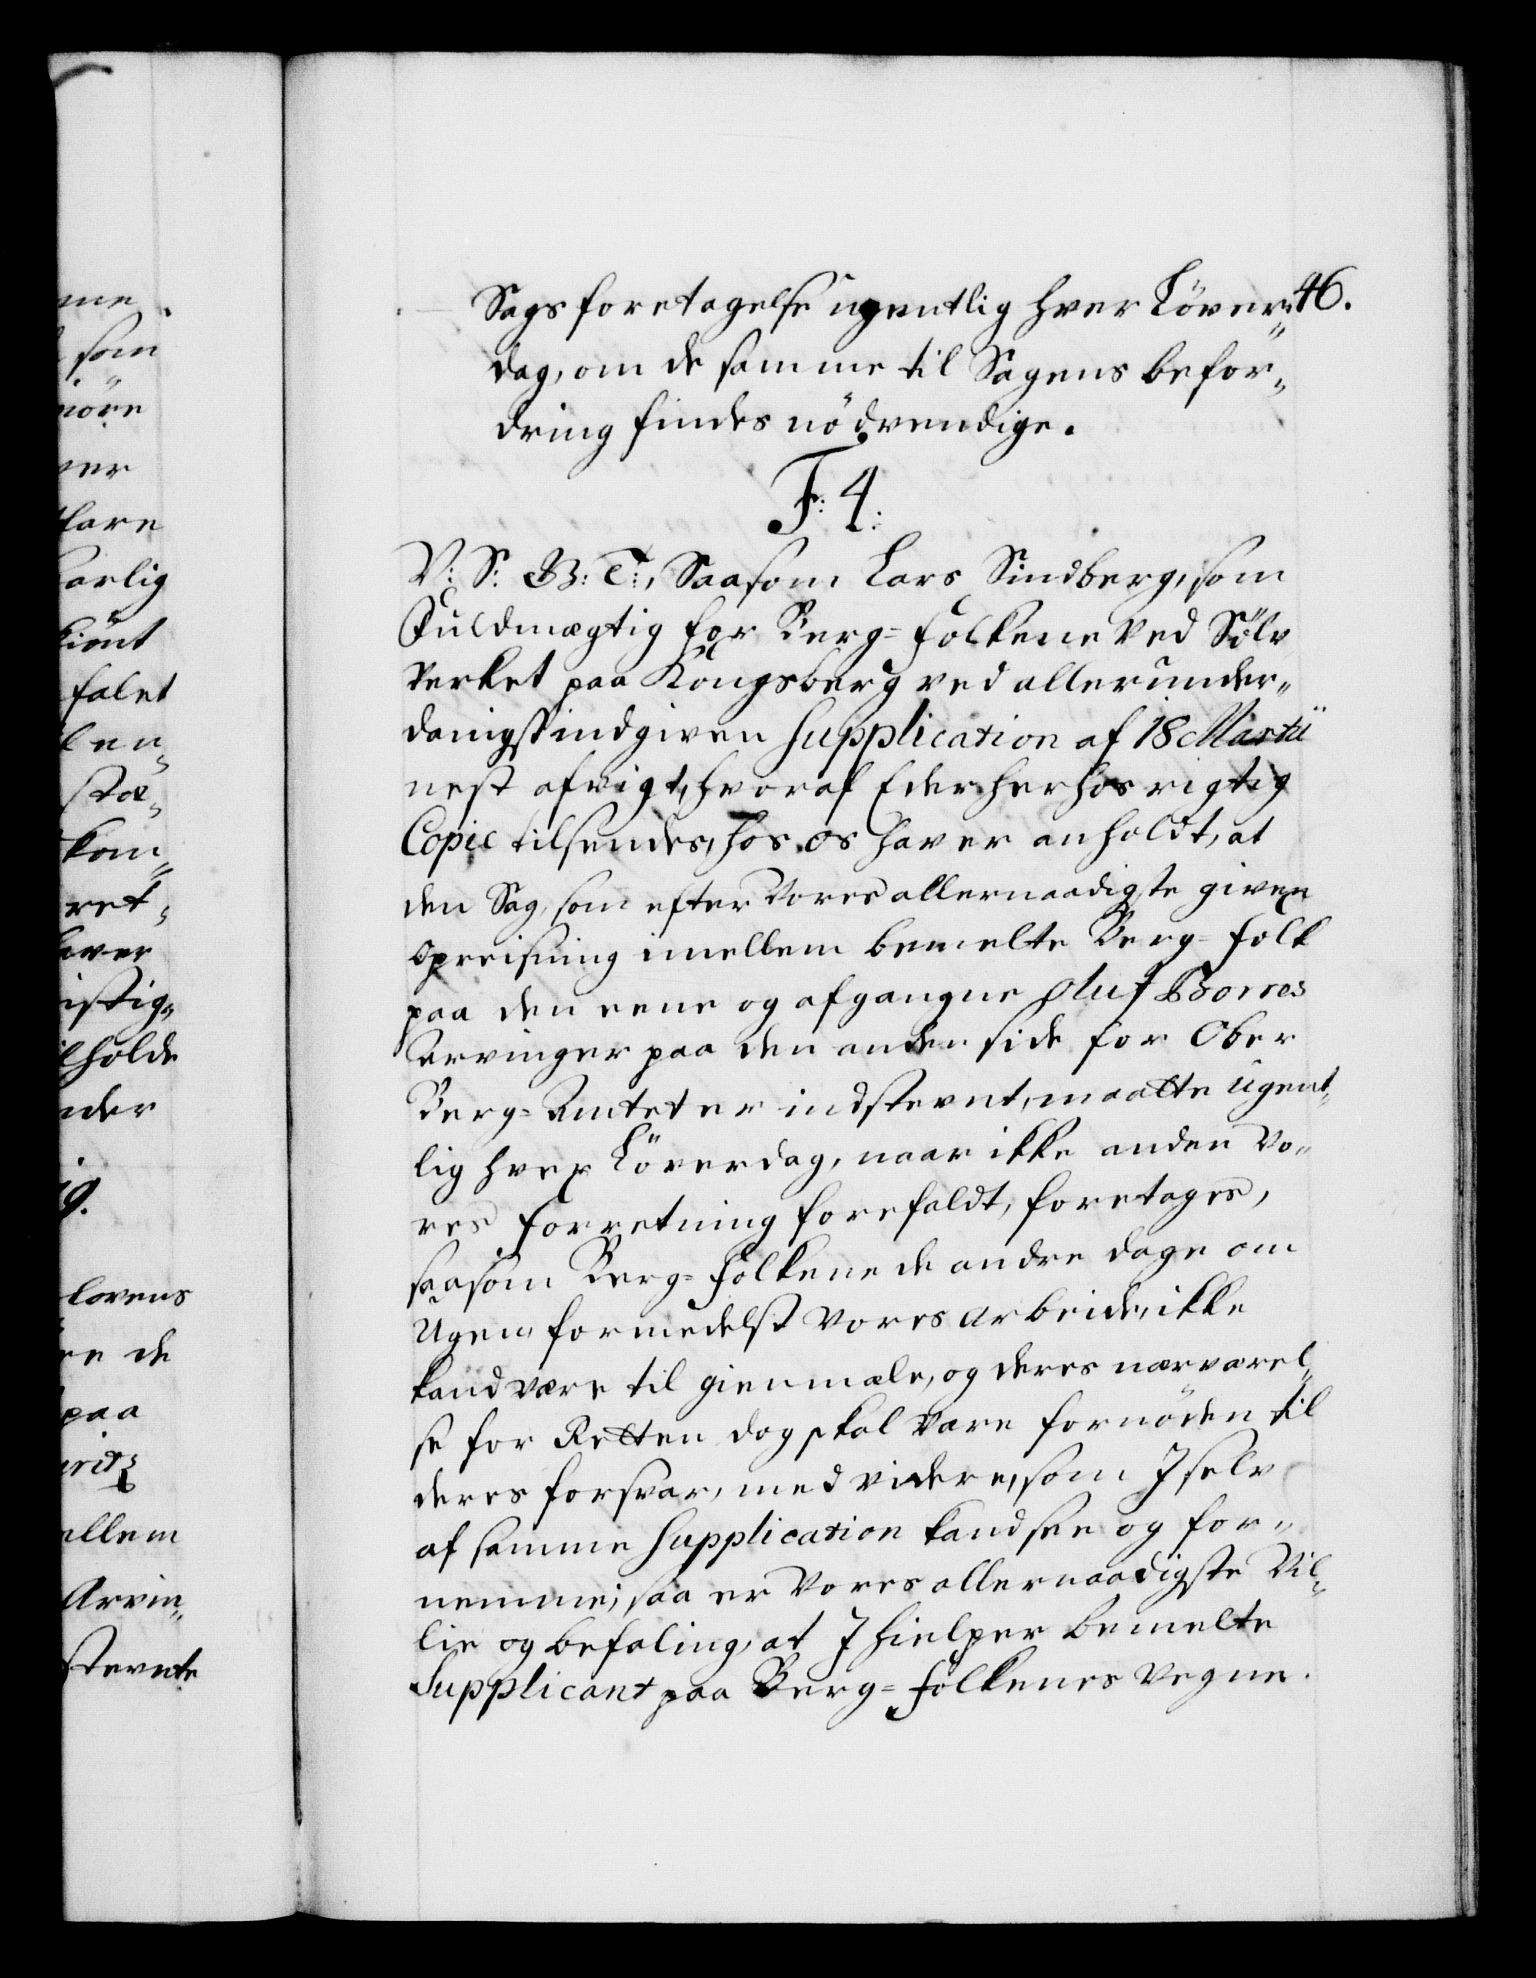 46.
Sags foretagelse ugentlig hver Löver„
dag, om de samme til Sagens befor„
dring findes nödvendige.
F: 4:
V: S: G: T:, Saasom Lars Sindberg, som
Fuldmægtig for Berg-folkene ved Sölv
Verket paa Kongsberg ved allerunder„
danigst indgiven Supplication af 18 Martii
nest afvigt, hvoraf Eder herhos rigtig
Copie tilsendes, hos os haver anholdt, at
den Sag, som efter Vores allernaadigste given
opreisning imellem bemelte Berg-folk
paa den eene og afgangne Oluf Borres
Arvinger paa den anden side for Ober
Berg-Amtet er indstevnt, maatte ugent„
lig hver Löverdag, naar ikke anden Vo„
res forretning forefaldt, foretages,
saasom Berg-folkene de andre dage om
Ugen, formedelst Vores Arbeide, ikke
kand være til gienmæle, og deres nærværel„
se for Retten dog skal være fornöden til
deres forsvar, med videre, som I selv
af samme Supplication kand see og for„
nemme; saa er Vores allernaadigste Vil„
lie og befaling, at I hielper bemelte
Supplicant paa Berg-folkenes Vegne
me
som
möre
ver
klare
arlig
kiönt
falet
len„
stæ„
kom„
ret„
haver
istig„
lholde
nder
ig.
lovens
re de
paa
uritz
ellem
Arvin„
stevnte